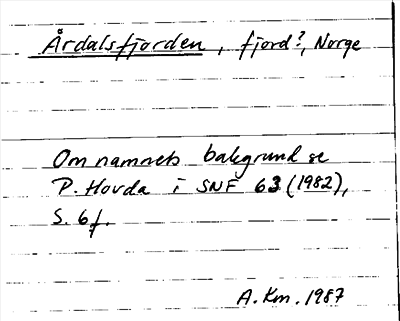 Årdalsfjorden, fjord?, Norge
Om namnets bakgrund se
P. Hovda i SNF 63 (1982),
S. 6f.
A. Km. 1987